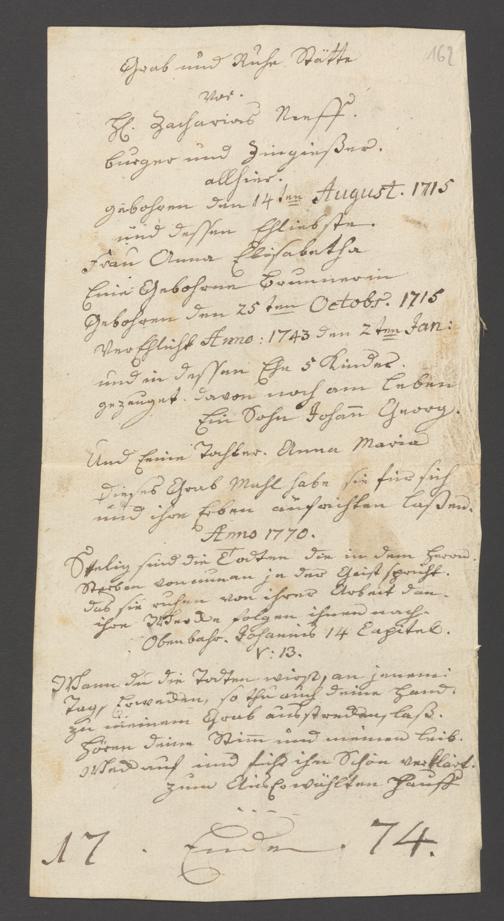 162
Grab und Ruhe Stätte
vor.
H. Zacharias Neeff.
burger und Zingießer.
allhier.
gebohren den 14ten August. 1715
und dessen Ehliebste.
Frau Anna Elisabetha
Eine Gebohrne Brunnerin
Gebohren den 25ten Octobr. 1715
Verehlicht Anno: 1743 den 2ten Jan:
und in dessen Ehe 5 Kinder.
gezeuget. davon noch am leben
Ein Sohn Johann Georg.
Und Eeine Tochter. Anna Maria
dieses Grab Mahl habe sie für sich
und ihre Erben aufrichten laßen.
Anno 1770.
Seelig sind die Todten die in dem Herrn.
Sterben von nunan ja der Geist spricht.
das sie ruhen von ihrer Arbeit dan.
ihre Wercke folgen ihnen nach.
Offenbahr. Johannis 14 Capitel.
V: 13.
Wann du die Todten wirst, an jenem
Tag, Erwecken, so thu auch deine Hand.
zu meinem Grab ausstrecken, laß.
hören deine Stim und meinen leib.
Weck auf und führ ihn Schön verklärt.
zum Auserwählten Hauff
17 . Ende . 74.